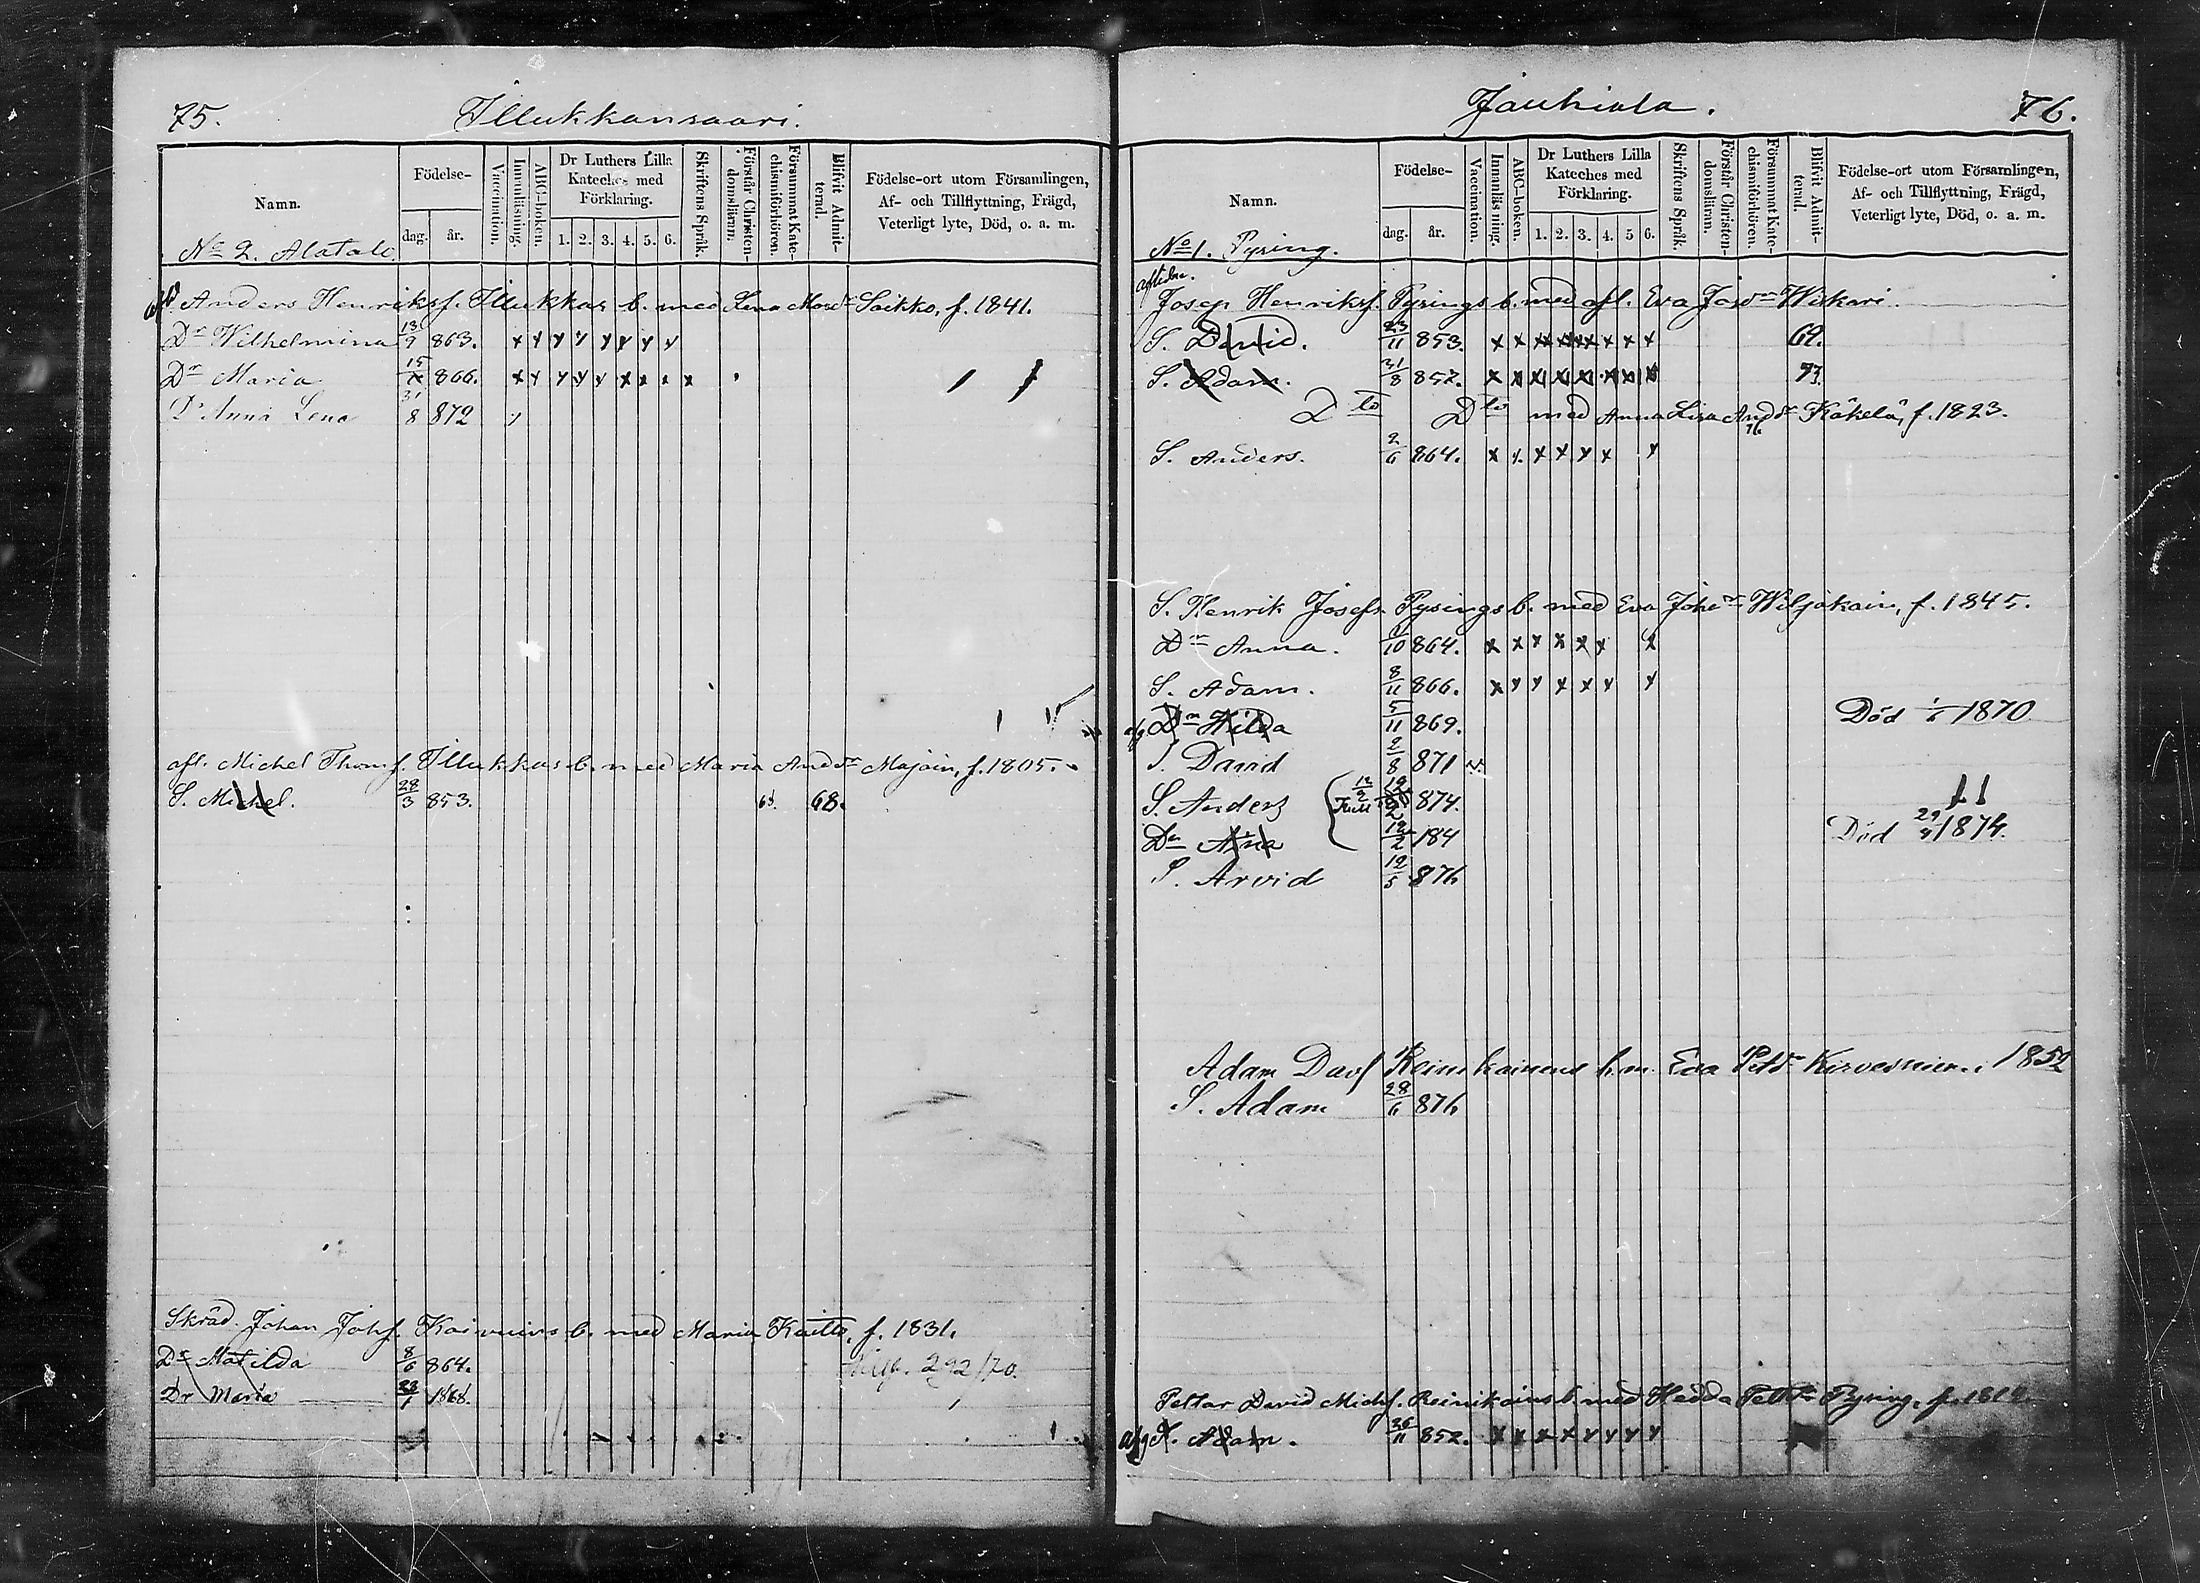 75.
Illukkansaari.
Namn.
Födelse-
dag.
år.
Vaccination.
Innanläsning.
ABC-boken.
Dr Luthers Lilla
Kateches med
Förklaring.
1. 2. 3. 4. 5. 6.
Skriftens Språk.
Förstår Christen-
domsläran.
Försummat Kate-
chismiförhören.
Blifvit Admit-
terad.
Födelse-ort utom Församlingen,
Af- och Tillflyttning, Frägd,
Veterligt lyte, Död, o. a. m.
No 2. Alatalo
Anders Henriksf. Illukkas b. med Lena Saikko, f. 1841.
Dr Wilhelmina 13/9 863. x y y y y y y y
Dr Maria 15 866. x y y y y x x x x
Dr Anna Lena 31/8 872
afl. Michel Thomsf. Illukkas b. med Maria And dr Majain, f. 1805.
S. Michel. 28/3 853. 68.
Skräd. Johan Johsf. b. med Maria f. 1831.
Dr Matilda 8/6 864. 292/70.
Dr Maria 23/1 1868.
76.
Jauhiala.
Namn.
Födelse-
dag.
år.
Vaccination.
Innanläsning.
ABC-boken.
Dr Luthers Lilla
Kateches med
Förklaring.
1. 2. 3. 4. 5 6.
Skriftens Språk.
Förstår Christen-
domsläran.
Försummat Kate-
chismiförhören.
Blifvit Admit-
terad.
Födelse-ort utom Församlingen,
Af- och Tillflyttning, Frägd,
Veterligt lyte, Död, o. a. m.
No 1. Pysing.
Josep Henriksf. Pysings b. med afl. Eva Wiskari
S. David. 23/11 853. x x x x x x x x 69.
S. Adam. 31/8 852. x x x x x x x x 73.
D to D to med Anna Lisa And dr Käkelä, f. 1823.
S. Anders. 2/6 864. x x x x y x y
S. Henrik Josefs. Pysings b. med Eva Joh dr Wiljakain, f. 1845.
Dr Anna. 1/10 864. x x x x x x x
S. Adam. 8/11 866. x y y x x y y
Dr Hilda 5/11 869. Död 1/6 1870
S. David 2/8 871
S. Anders 12/2 874.
Dr Anna 12/2 184 Död 29/4 1874.
S. Arvid 12/5 876
Adam Davsf Reinikainens h. m. Eva Pet dr 1852
S. Adam 28/6 876
Pettar David Michsf. Reinikains b. med Hedda Pett dr Pysing, f.
S. Adam. 26/11 852. x x x x y y y y